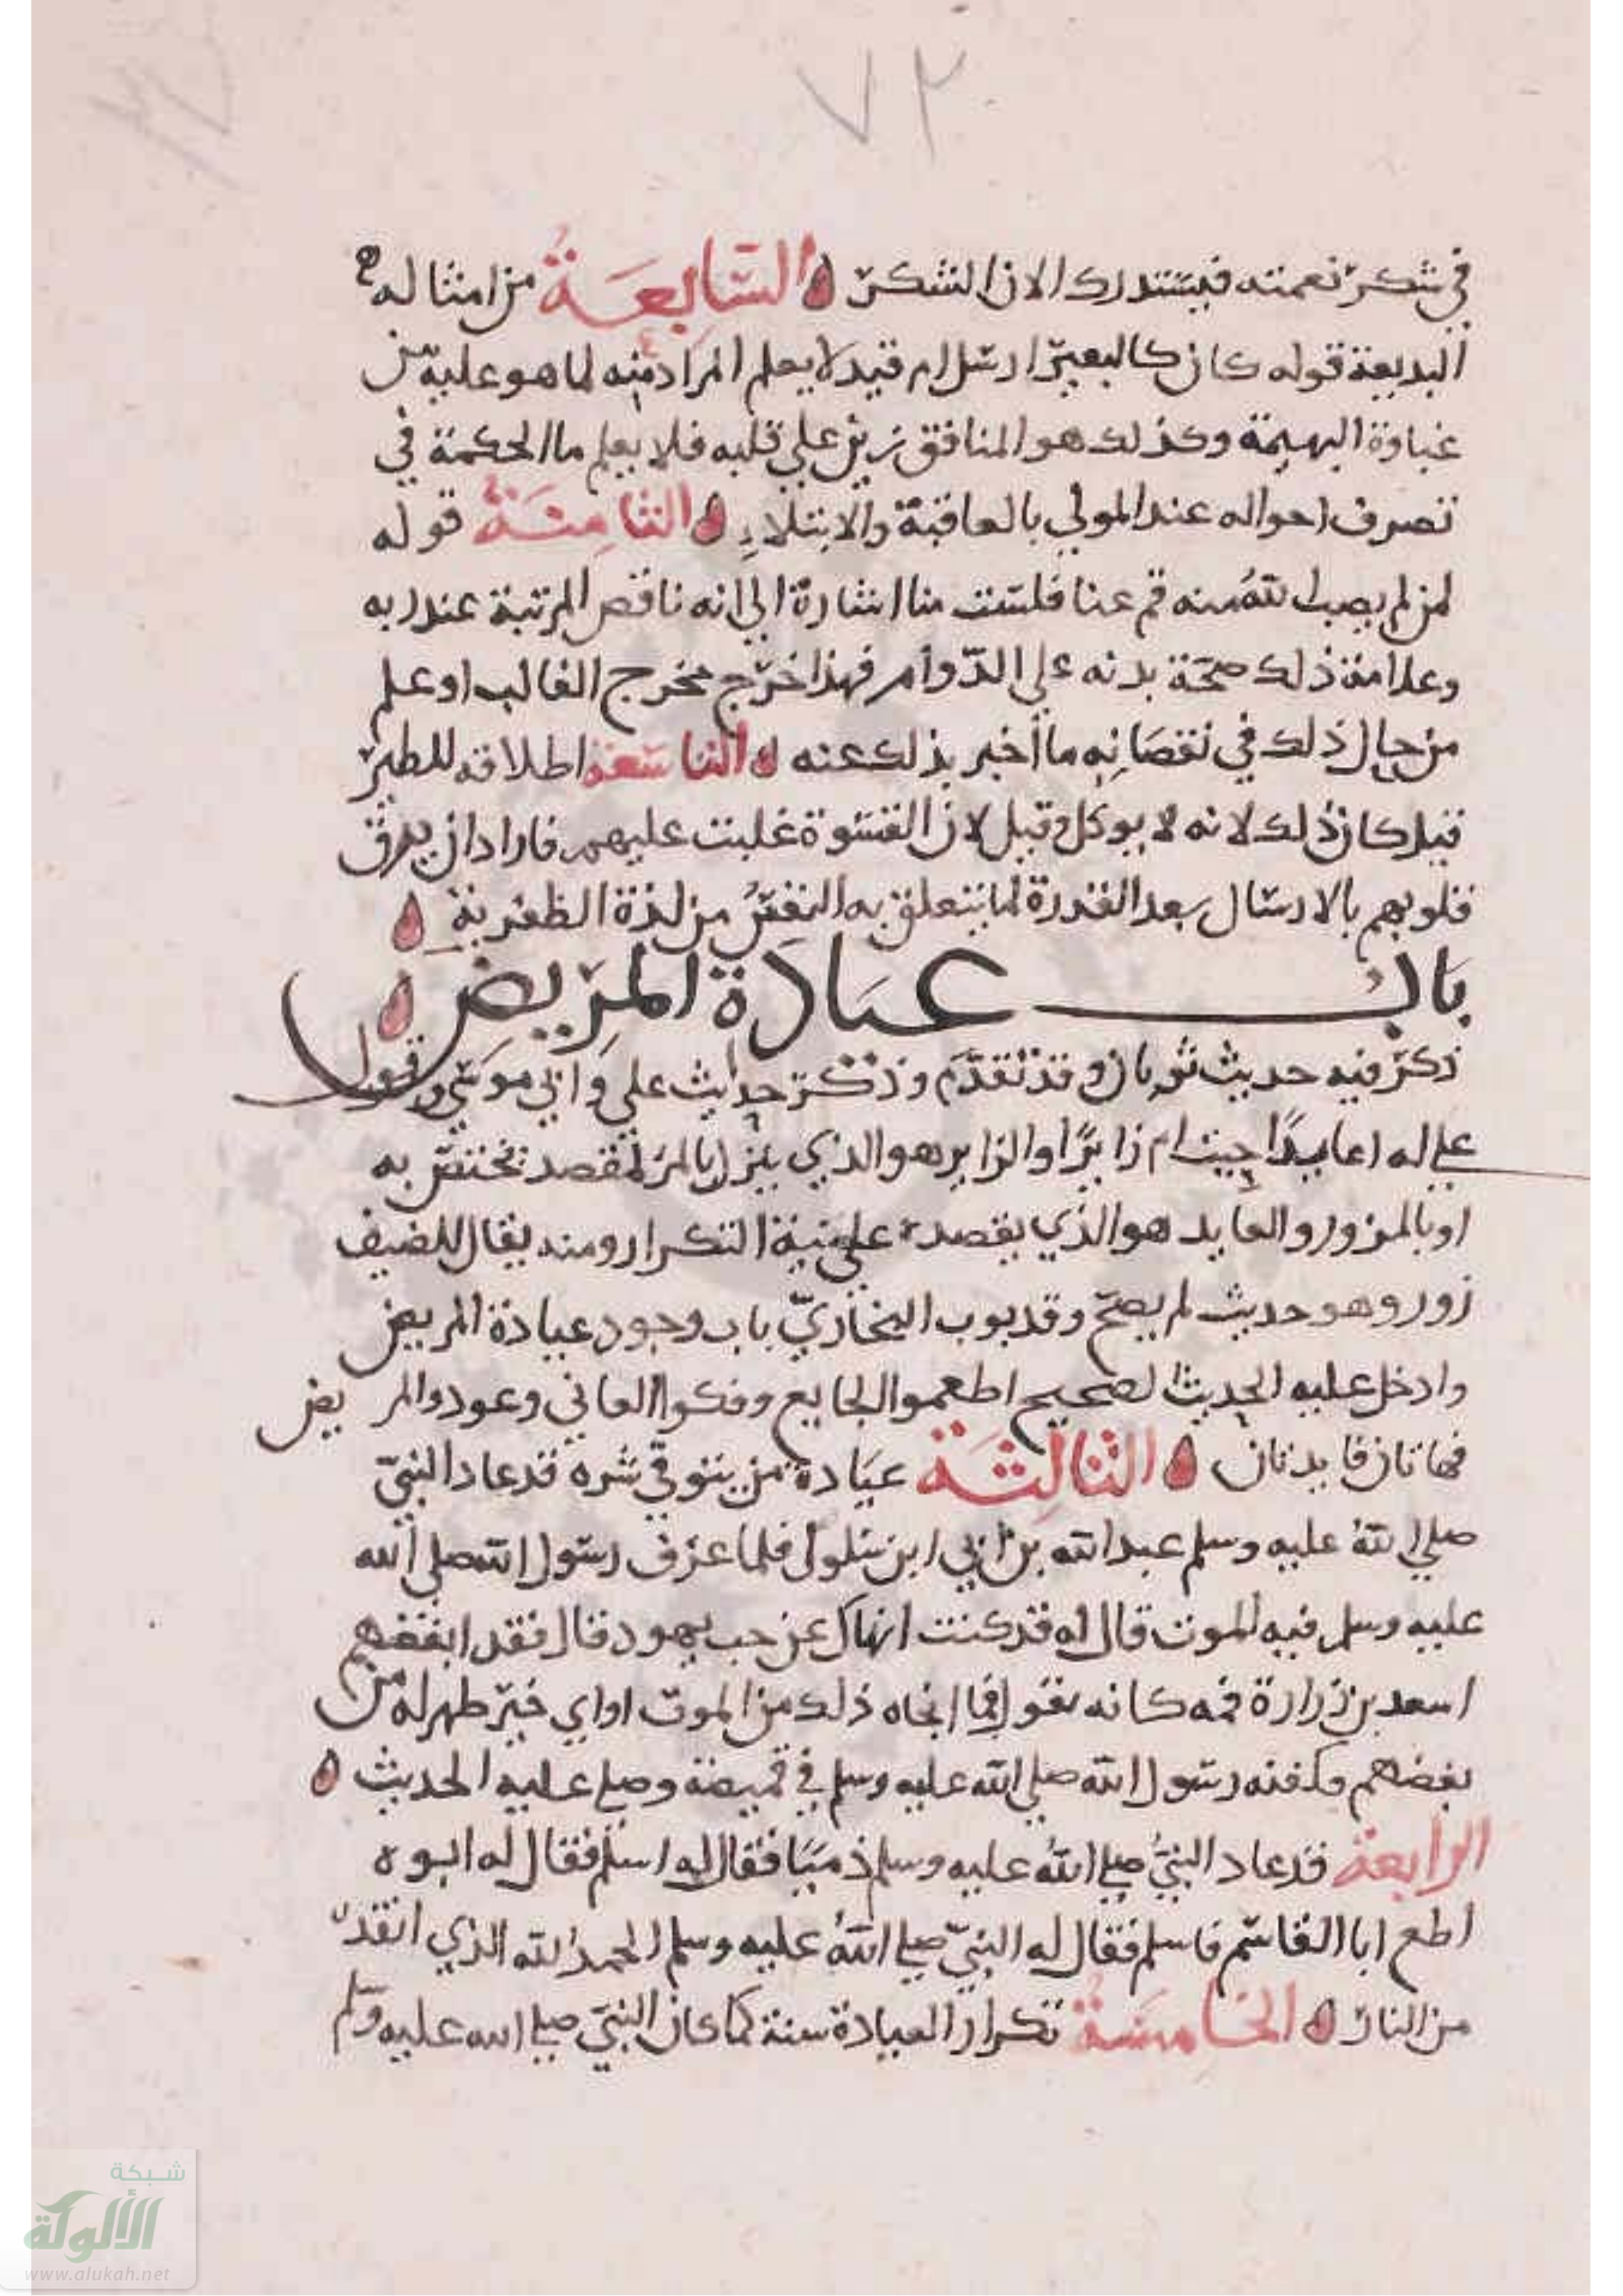 ٧٢
في شكر نعمته فيستدرك الان الشكر السابعة من امثاله
البديعة قوله كان كالبعير ارسل ام قيد لا يعلم المراد منه لما هو عليه من
غباوة البهيمة وكذلك هو المنافق زين علي قلبه فلا يعلم ما الحكمة في
تصرف احواله عند المولي بالعافية والابتلاء الثامنة قوله
لمن لم يصب الله منه قم عنا فلست منا اشارة الي انه ناقص المرتبة عند ربه
وعلامة ذلك صحة بدنه علي الدوام فهذا خرج مخرج الغالب او علم
من حال ذلك في نقصانه ما أخبر بذلك عنه التاسعة اطلاقه للطير
قيل كان ذلك لانه لا يوكل وقيل لان القسوة غلبت عليهم فاراد ان يرق
قلوبهم بالارسال بعد القدرة لما يتعلق به النفس من لذة الظفر به
باب عيادة المريض
ذكر فيه حديث ثوبان وقد تقدم وذكر حديث علي وابي موسي وقول
علي له اعايدا جيت ام زايرا والزاير هو الذي ينزل بالمرء لمقصد يختص به
او بالمزور والعايد هو الذي يقصده علي نية التكرار ومنه يقال للضيف
زور وهو حديث لم يصح وقد بوب البخاري باب وجود عيادة المريض
وادخل عليه الحديث الصحيح اطعموا الجايع وفكوا العاني وعودوا المريض
فهاتان فايدتان الثالثة عيادة من يتوقي شره قد عاد النبي
صلي الله عليه وسلم عبد الله بن ابي ابن سلول فلما عرف رسول الله صلي الله
عليه وسلم فيه الموت قال له قد كنت انهاك عن حب يهود قال فقد ابغضهم
اسعد بن زرارة فمه كانه يقول فما انجاه ذلك من الموت او اي خير ظهر له من
بغضهم وكفنه رسول الله صلي الله عليه وسلم في قميصه وصلي عليه الحديث
الرابعة قد عاد النبي صلي الله عليه وسلم ذميا فقال له اسلم فقال له ابوه
اطع ابا القاسم فاسلم فقال له النبي صلي الله عليه وسلم الحمد لله الذي انقذه
من النار الخامسة تكرار العيادة سنة كما كان النبي صلي الله عليه وسلم
شبكة
الألوكة
www.alukah.net